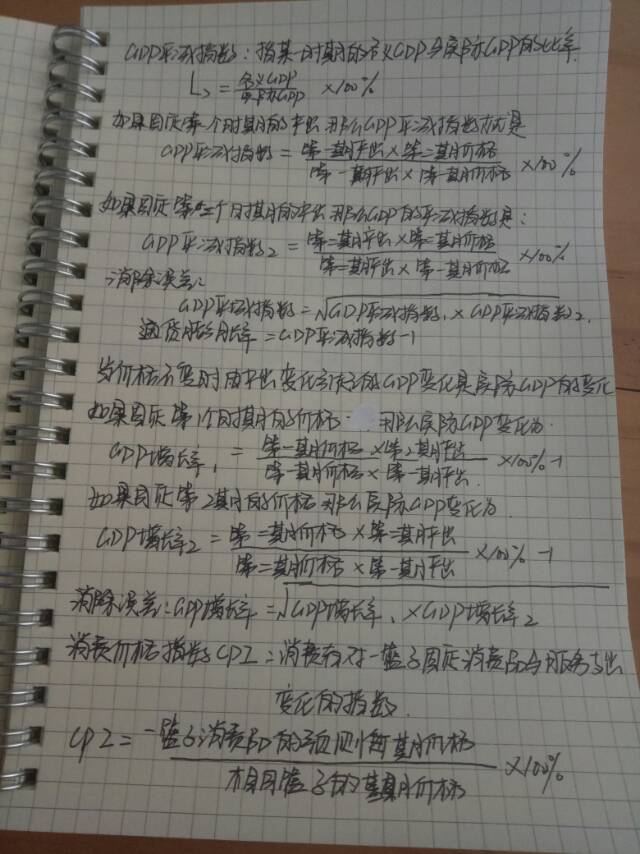 GDP平减指数：指某一时期的名义GDP与实际GDP的比率.
L> = 名义GDP / 实际GDP ×100%
如果固定第一个时期的产出 那么GDP平减指数就是
GDP平减指数 = 第一期产出×第二期价格 / 第一期产出×第一期价格 ×100%
如果固定第二个时期的产出 那么GDP的平减指数是：
GDP平减指数2 = 第二期产出×第二期价格 / 第二期产出×第一期价格 ×100%
消除误差：
GDP平减指数 = √GDP平减指数1×GDP平减指数2.
通货膨胀率 = GDP平减指数-1
当价格不变时由产出变化引起的GDP变化是实际GDP的变化
如果固定第1个时期的价格 那么实际GDP变化为.
GDP增长率1 = 第一期价格×第2期产出 / 第一期价格×第一期产出. ×100%-1
如果固定第2期的价格 那么实际GDP变化为.
GDP增长率2 = 第二期价格×第二期产出 / 第二期价格×第一期产出 ×100%-1
消除误差：GDP增长率 = √GDP增长率1×GDP增长率2
消费价格指数CPI：消费者对一篮子固定消费品与服务支出
变化的指数.
CPI = 一篮子消费品的期价格 / 相同篮子的基期价格 ×100%